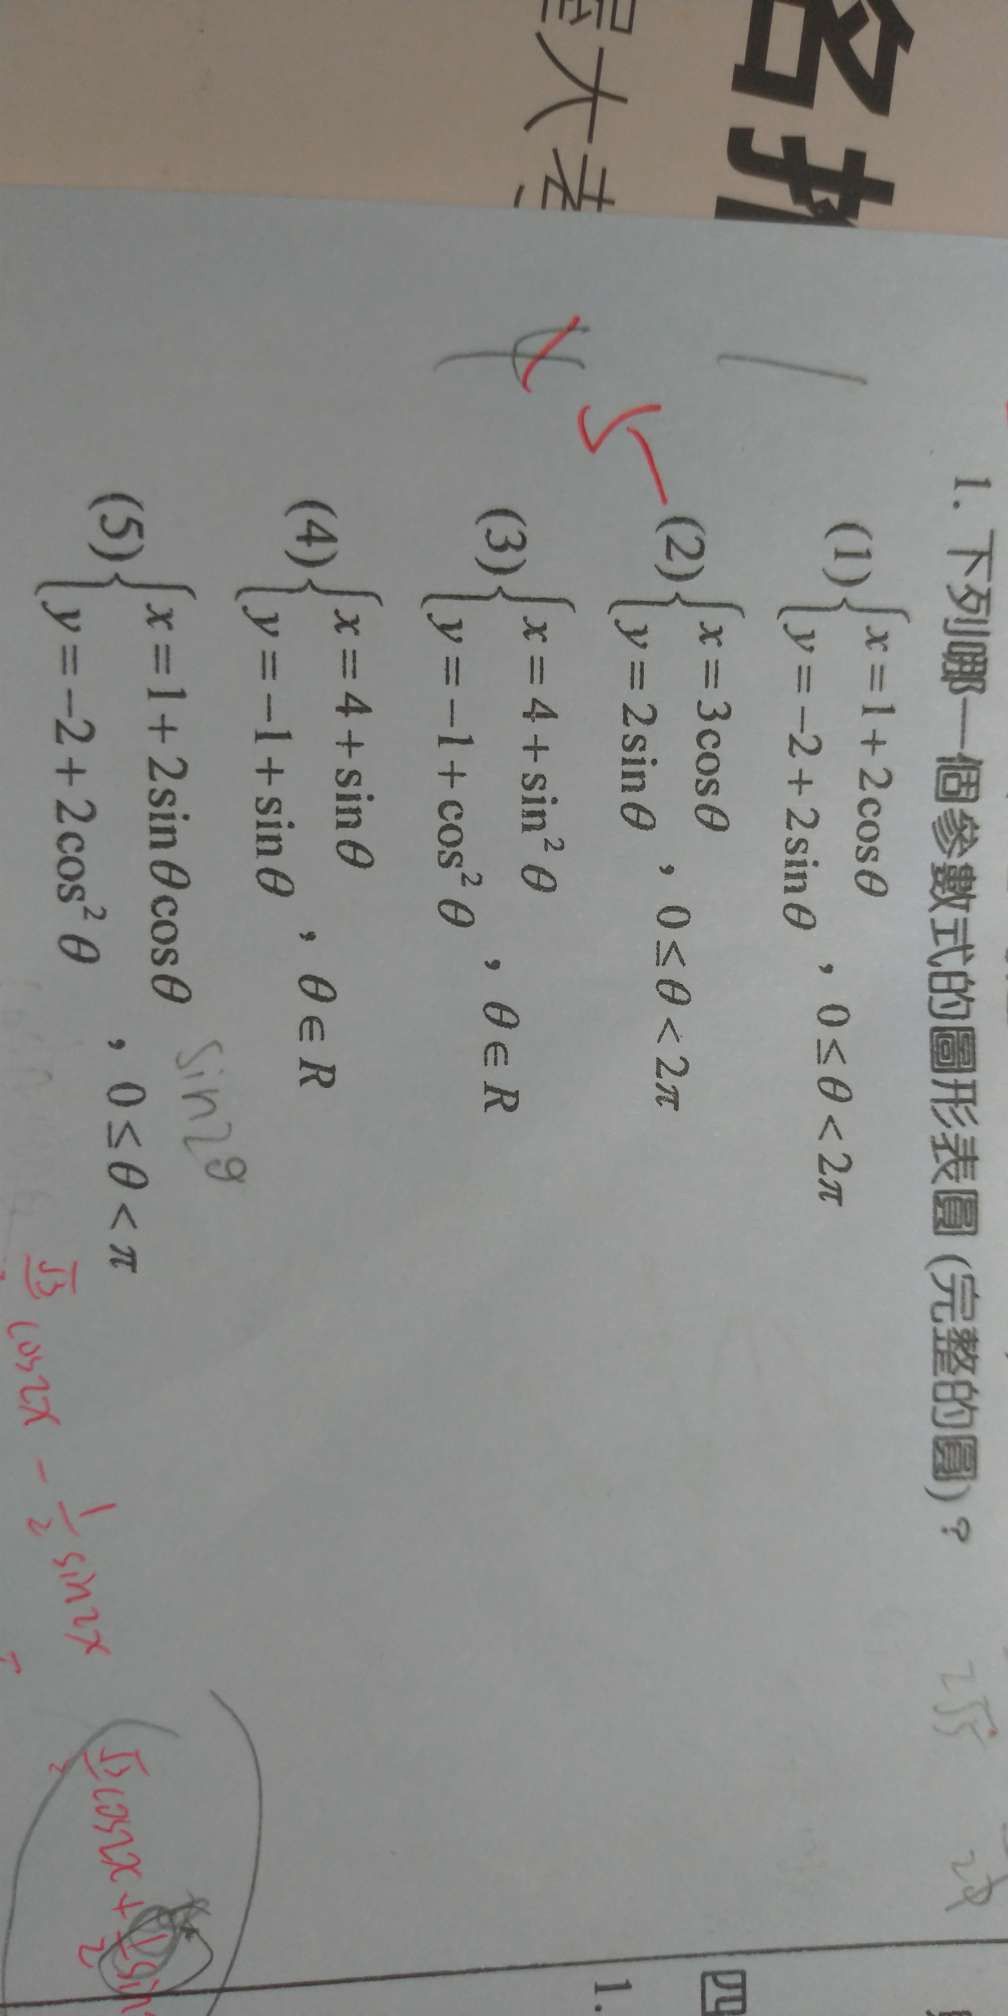 名
大考
1. 下列哪一個參數式的圖形表圓(完整的圓)?
(1) { x=1+2cosθ
y=-2+2sinθ , 0≤θ<2π
(2) { x=3cosθ
y=2sinθ , 0≤θ<2π
(3) { x=4+sin²θ
y=-1+cos²θ , θ∈R
(4) { x=4+sinθ
y=-1+sinθ , θ∈R
(5) { x=1+2sinθcosθ
y=-2+2cos²θ , 0≤θ<π
1
4
5
sin2θ
cos2x - 1/2 sin2x
√3/2 cos2x + 1/2 sin
2√5
四
1.